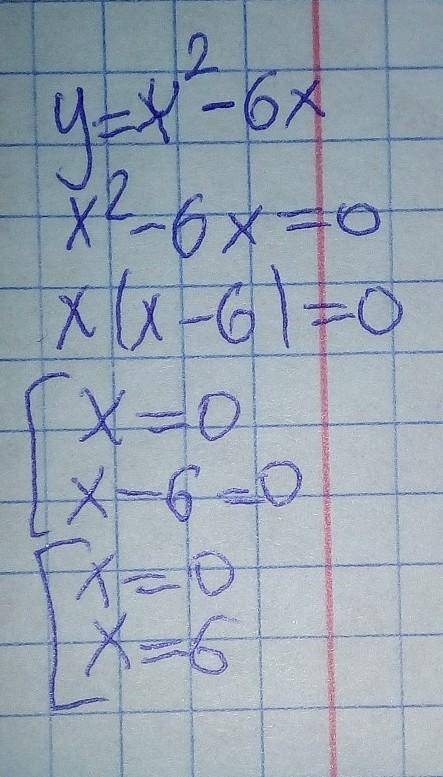 y=x²-6x
x²-6x=0
x(x-6)=0
[x=0
x-6=0
[x=0
x=6